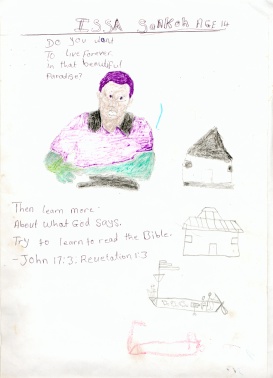 ISSA SANKOH AGE 14
Do you want
To live forever
in that beautiful
Paradise?
Then learn more
About what God says.
Try to learn to read the Bible.
-John 17:3. Revelation 1:3